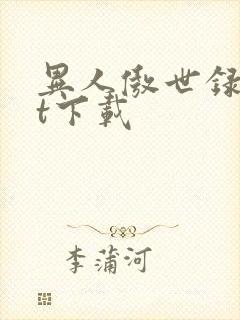 異人傲世録
t下載
李蒲河